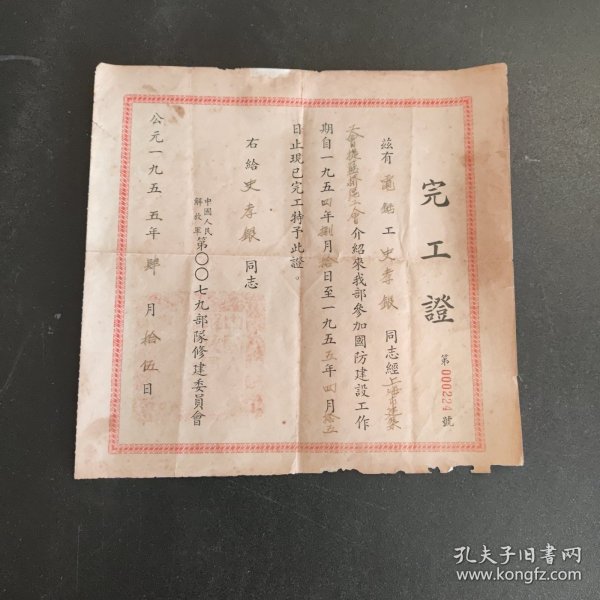 完工證
第000224號
茲有電鋸工史孝銀同志經上海市建築
工會提籃橋區工會介紹來我部參加國防建設工作
期自一九五四年捌月拾日至一九五五年四月拾五
日止現已完工特予此證。
右給史孝銀同志
中國人民解放軍第〇〇七九部隊修建委員會
公元一九五五年肆月拾伍日
孔夫子旧书网
www.kongfz.com